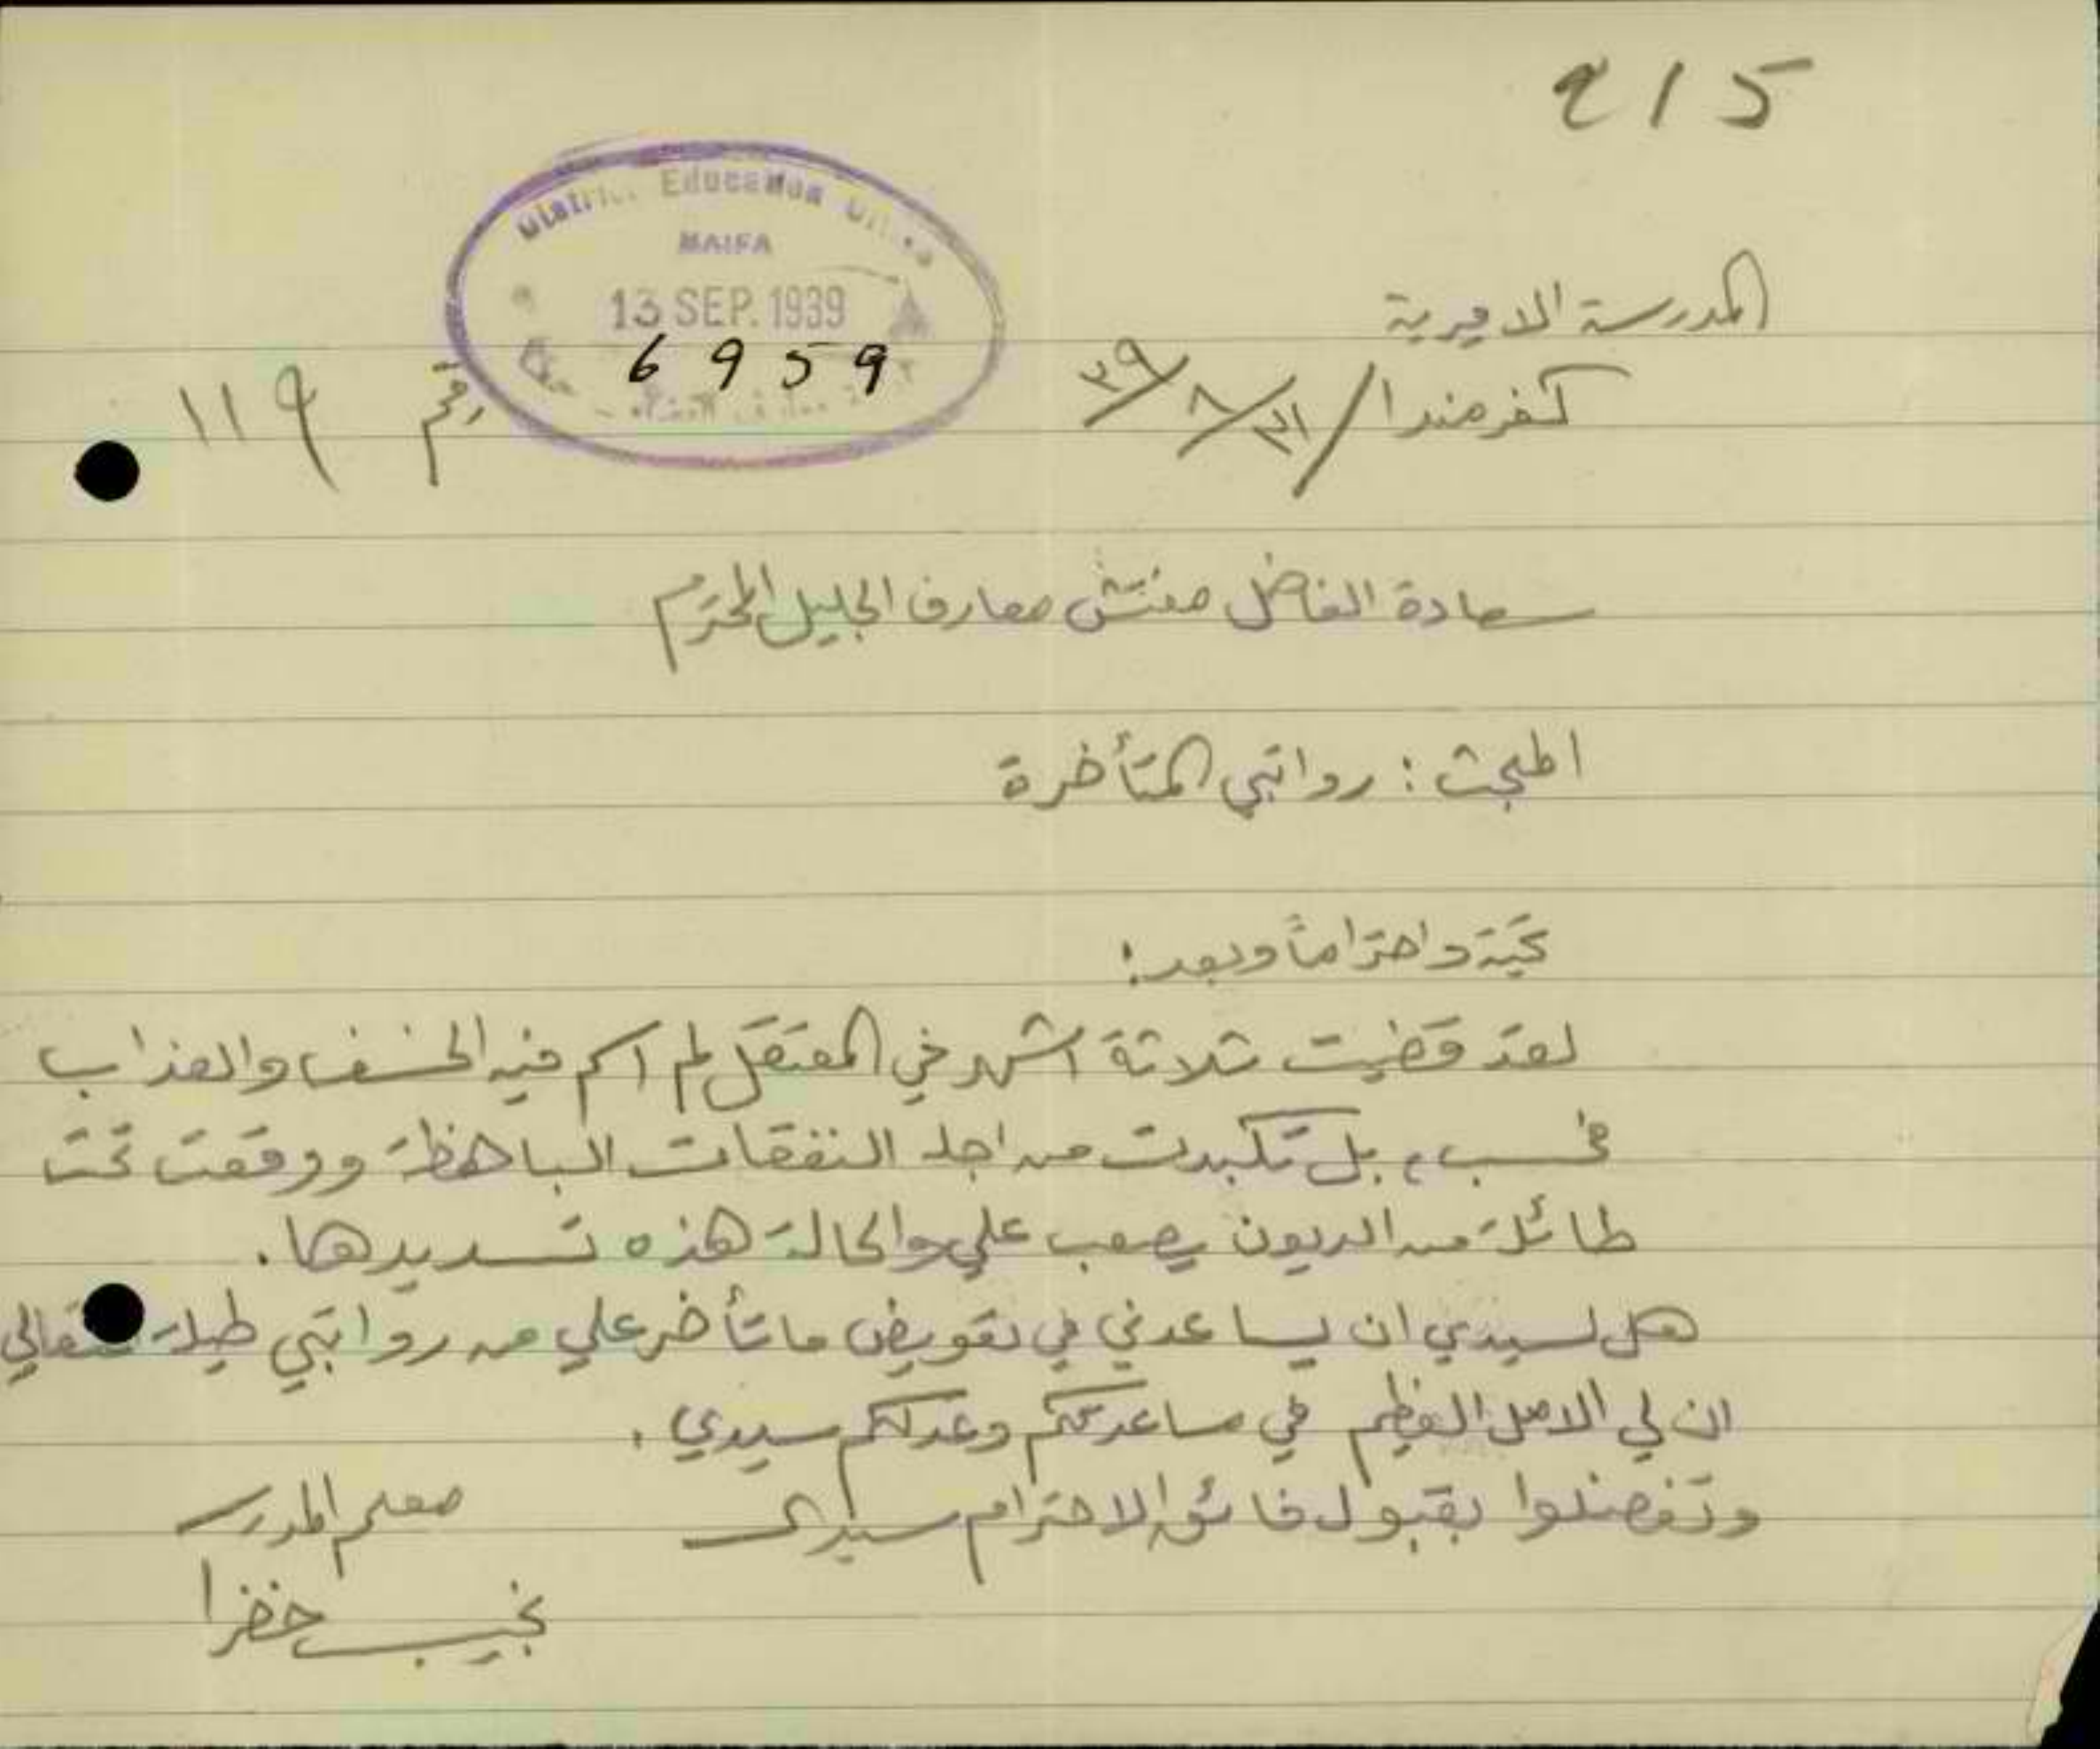 215
District Education Office
HAIFA
13 SEP. 1939
6959
المدرسة الاميرية
كفرمندا / ٣١ / ٨ / ٣٩
رقم ١١٩
سعادة الفاضل مفتش معارف الجليل المحترم
المبحث : رواتبي المتأخرة
تحية واحتراماً وبعد :
لقد قضيت ثلاثة اشهر في المعتقل لم اسم فيه الخسف والعذاب
فحسب ، بل تكبدت من اجله النفقات الباهظة ووقعت تحت
طائلة من الديون يصعب علي والحالة هذه تسديدها .
هل لسيدي ان يساعدني في تعويض ما تأخر علي من رواتبي طيلة
ان لي الامل العظيم في مساعدتكم وعدلكم سيدي .
وتفضلوا بقبول فائق الاحترام سيدي
معلم المدرسة
نجيب خضرا